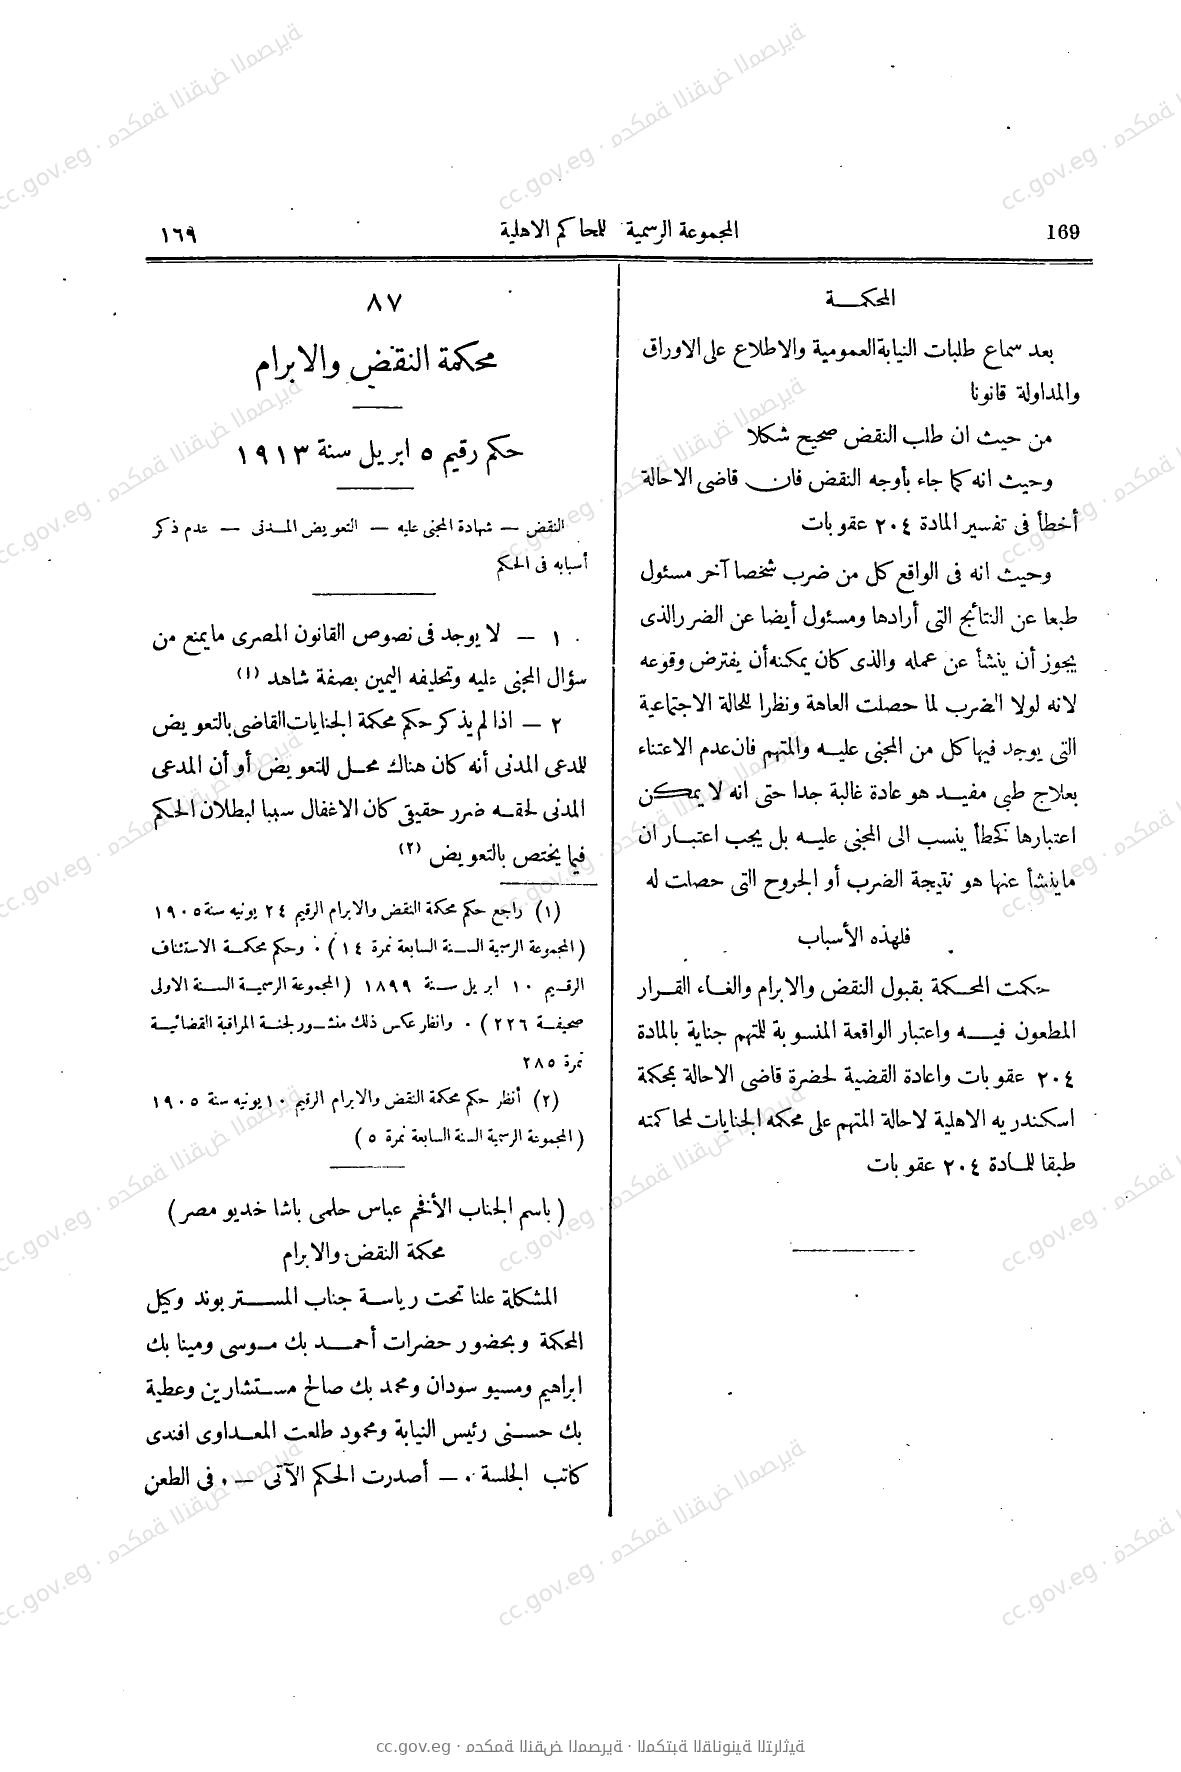 169
المجموعة الرسمية للمحاكم الاهلية
١٦٩
المحكمـــة
بعد سماع طلبات النيابة العمومية والاطلاع على الاوراق
والمداولة قانونا
من حيث ان طلب النقض صحيح شكلا
وحيث انه كما جاء بأوجه النقض فان قاضى الاحالة
أخطأ فى تفسير المادة ٢٠٤ عقوبات
وحيث انه فى الواقع كل من ضرب شخصا آخر مسئول
طبعا عن النتائج التى أرادها ومسئول أيضا عن الضرر الذى
يجوز أن ينشأ عن عمله والذى كان يمكنه أن يفترض وقوعه
لانه لولا الضرب لما حصلت العاهة ونظرا للحالة الاجتماعية
التى يوجد فيها كل من المجنى عليه والمتهم فان عدم الاعتناء
بعلاج طبى مفيد هو عادة غالبة جدا حتى انه لا يمكن
اعتبارها كخطأ ينسب الى المجنى عليه بل يجب اعتبار ان
ما ينشأ عنها هو نتيجة الضرب أو الجروح التى حصلت له
فلهذه الأسباب
حكمت المحكمة بقبول النقض والابرام والغاء القرار
المطعون فيه واعتبار الواقعة المنسوبة للمتهم جناية بالمادة
٢٠٤ عقوبات واعادة القضية لحضرة قاضى الاحالة بمحكمة
اسكندريه الاهلية لاحالة المتهم على محكمه الجنايات لمحاكمته
طبقا للمادة ٢٠٤ عقوبات
٨٧
محكمة النقض والابرام
حكم رقيم ٥ ابريل سنة ١٩١٣
النقض — شهادة المجنى عليه — التعويض المدنى — عدم ذكر
أسبابه فى الحكم
١ — لا يوجد فى نصوص القانون المصرى ما يمنع من
سؤال المجنى عليه وتحليفه اليمين بصفة شاهد (١)
٢ — اذا لم يذكر حكم محكمة الجنايات القاضى بالتعويض
للمدعى المدنى أنه كان هناك محل للتعويض أو أن المدعى
المدنى لحقه ضرر حقيقى كان الاغفال سببا لبطلان الحكم
فيما يختص بالتعويض (٢)
(١) راجع حكم محكمة النقض والابرام الرقيم ٢٤ يونيه سنة ١٩٠٥
(المجموعة الرسمية السنة السابعة نمرة ١٤) ٠ وحكم محكمة الاستئناف
الرقيم ١٠ ابريل سنة ١٨٩٩ (المجموعة الرسمية السنة الاولى
صحيفة ٢٢٦) ٠ وانظر عكس ذلك منشور لجنة المراقبة القضائية
نمرة ٢٨٥
(٢) أنظر حكم محكمة النقض والابرام الرقيم ١٠ يونيه سنة ١٩٠٥
(المجموعة الرسمية السنة السابعة نمرة ٥)
(باسم الجناب الأفخم عباس حلمى باشا خديو مصر)
محكمة النقض والابرام
المشكلة علنا تحت رياسة جناب المستر بوند وكيل
المحكمة وبحضور حضرات أحمد بك موسى ومينا بك
ابراهيم ومسيو سودان ومحمد بك صالح مستشارين وعطية
بك حسنى رئيس النيابة ومحمود طلعت المعداوى افندى
كاتب الجلسة ٠ — أصدرت الحكم الآتى — ٠ فى الطعن
cc.gov.eg · محكمة النقض المصرية · المكتبة القانونية التراثية